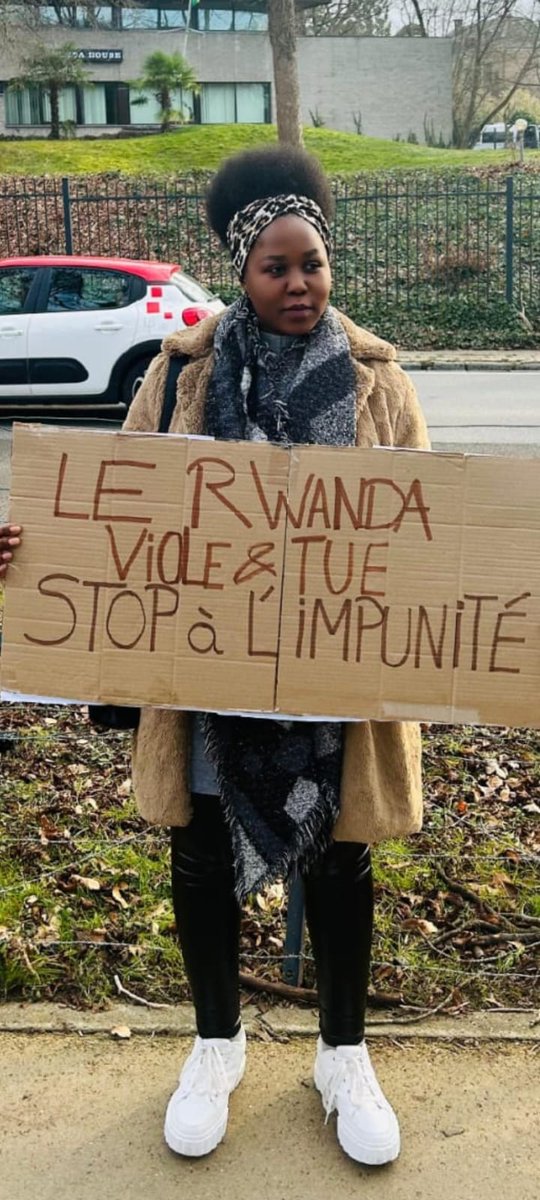 DA HOUSE
LE RWANDA
ViOLE & TUE
STOP à L'iMPUNiTÉ